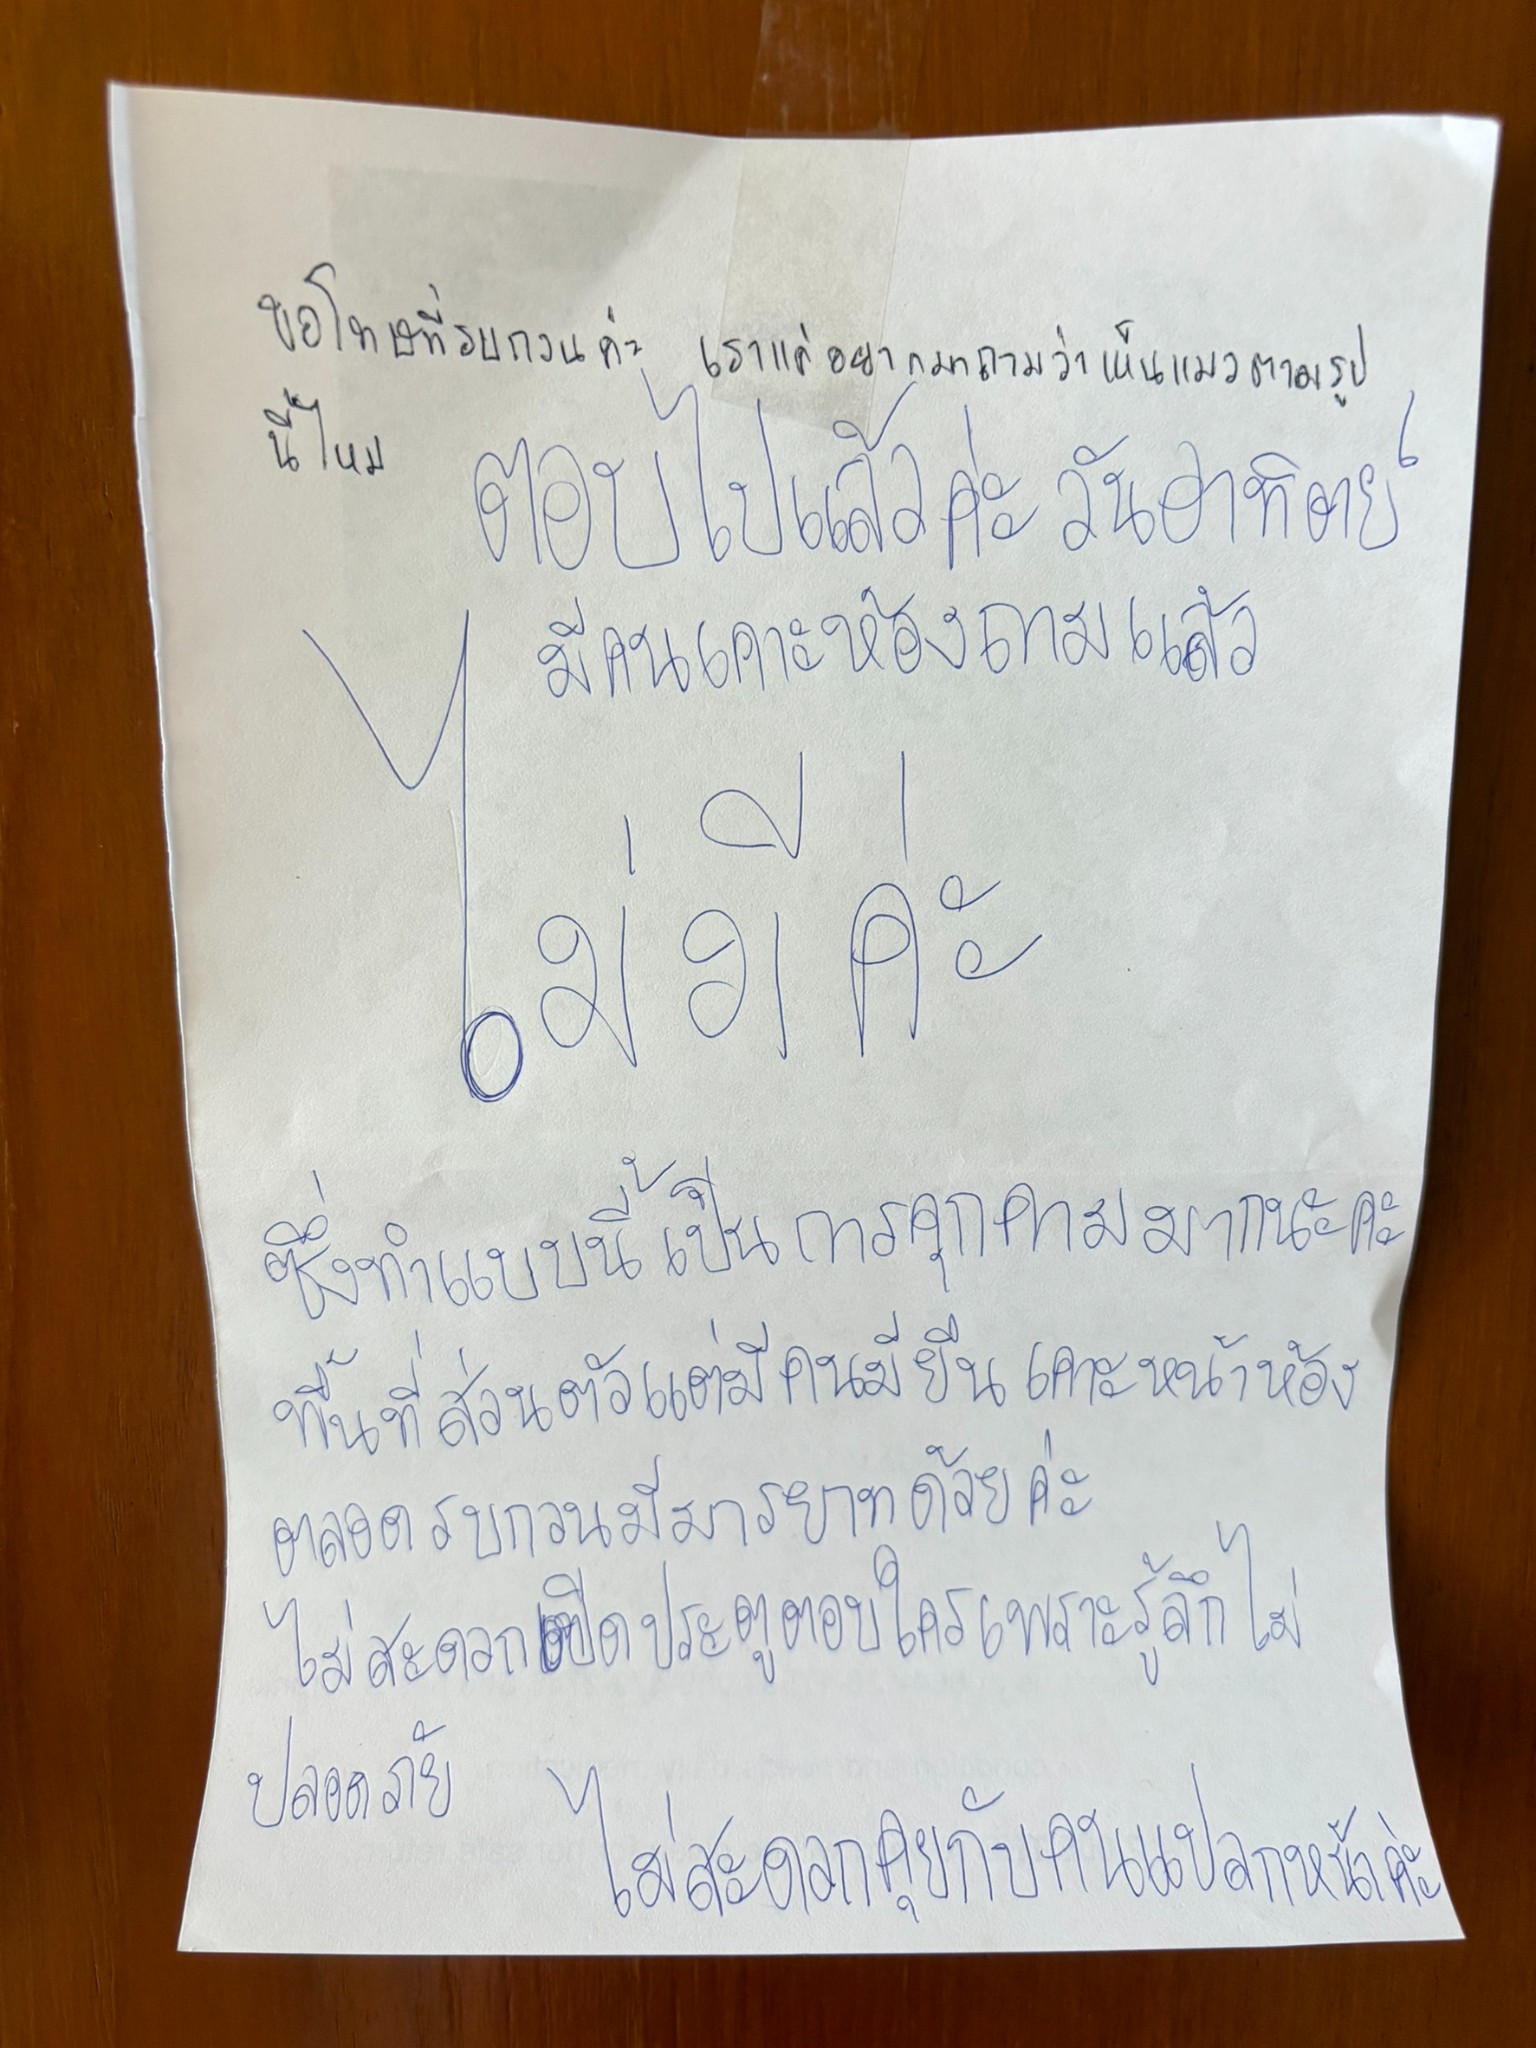 ขอโทษที่รบกวนค่ะ เราแค่อยากมาถามว่าเห็นแมวตามรูป
นี้ไหม
ตอบไปแล้วค่ะ วันอาทิตย์
มีคนเคาะห้องถามแล้ว
ไม่มีค่ะ
ซึ่งทำแบบนี้เป็นการคุกคามมากนะคะ
พื้นที่ส่วนตัวแต่มีคนมียืนเคาะหน้าห้อง
ตลอดรบกวนมีมารยาทด้วยค่ะ
ไม่สะดวกเปิดประตูตอบใครเพราะรู้สึกไม่
ปลอดภัย
ไม่สะดวกคุยกับคนแปลกหน้าค่ะ